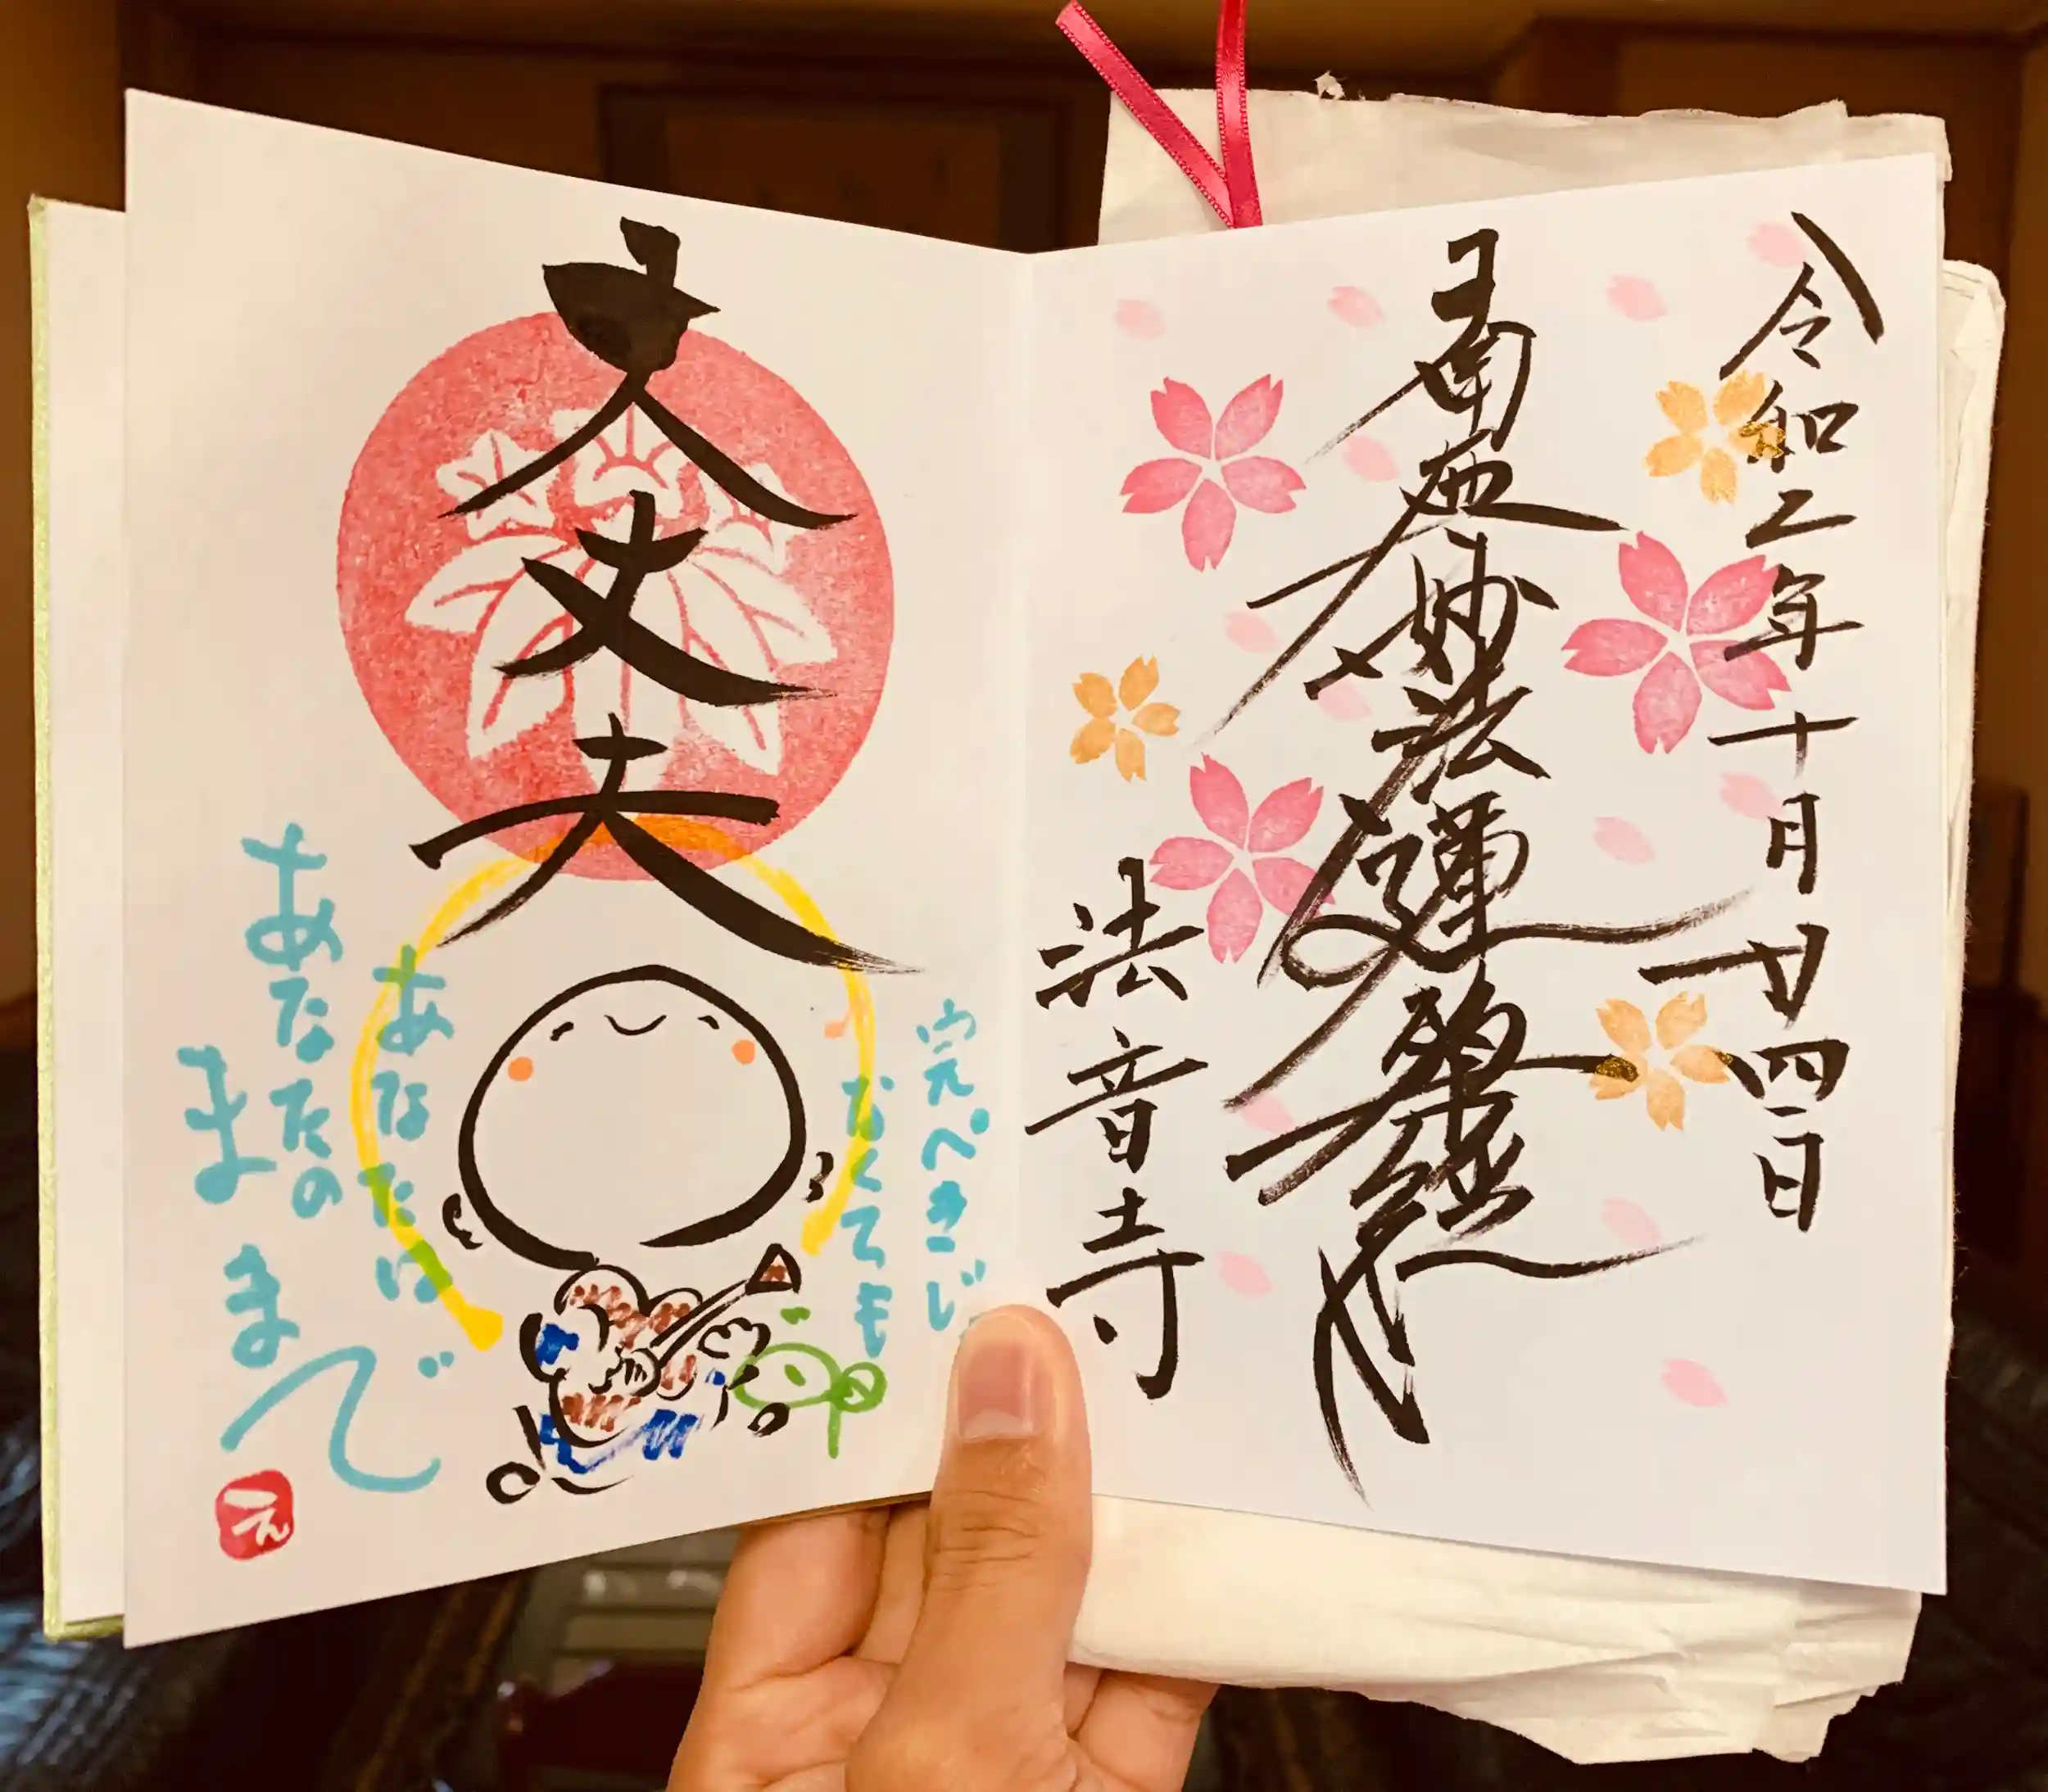 令和二年十月廿四日
南無妙法蓮華経
法音寺
大丈夫
完ぺきじ
なくても
あなたは
あなたの
まま
で
え